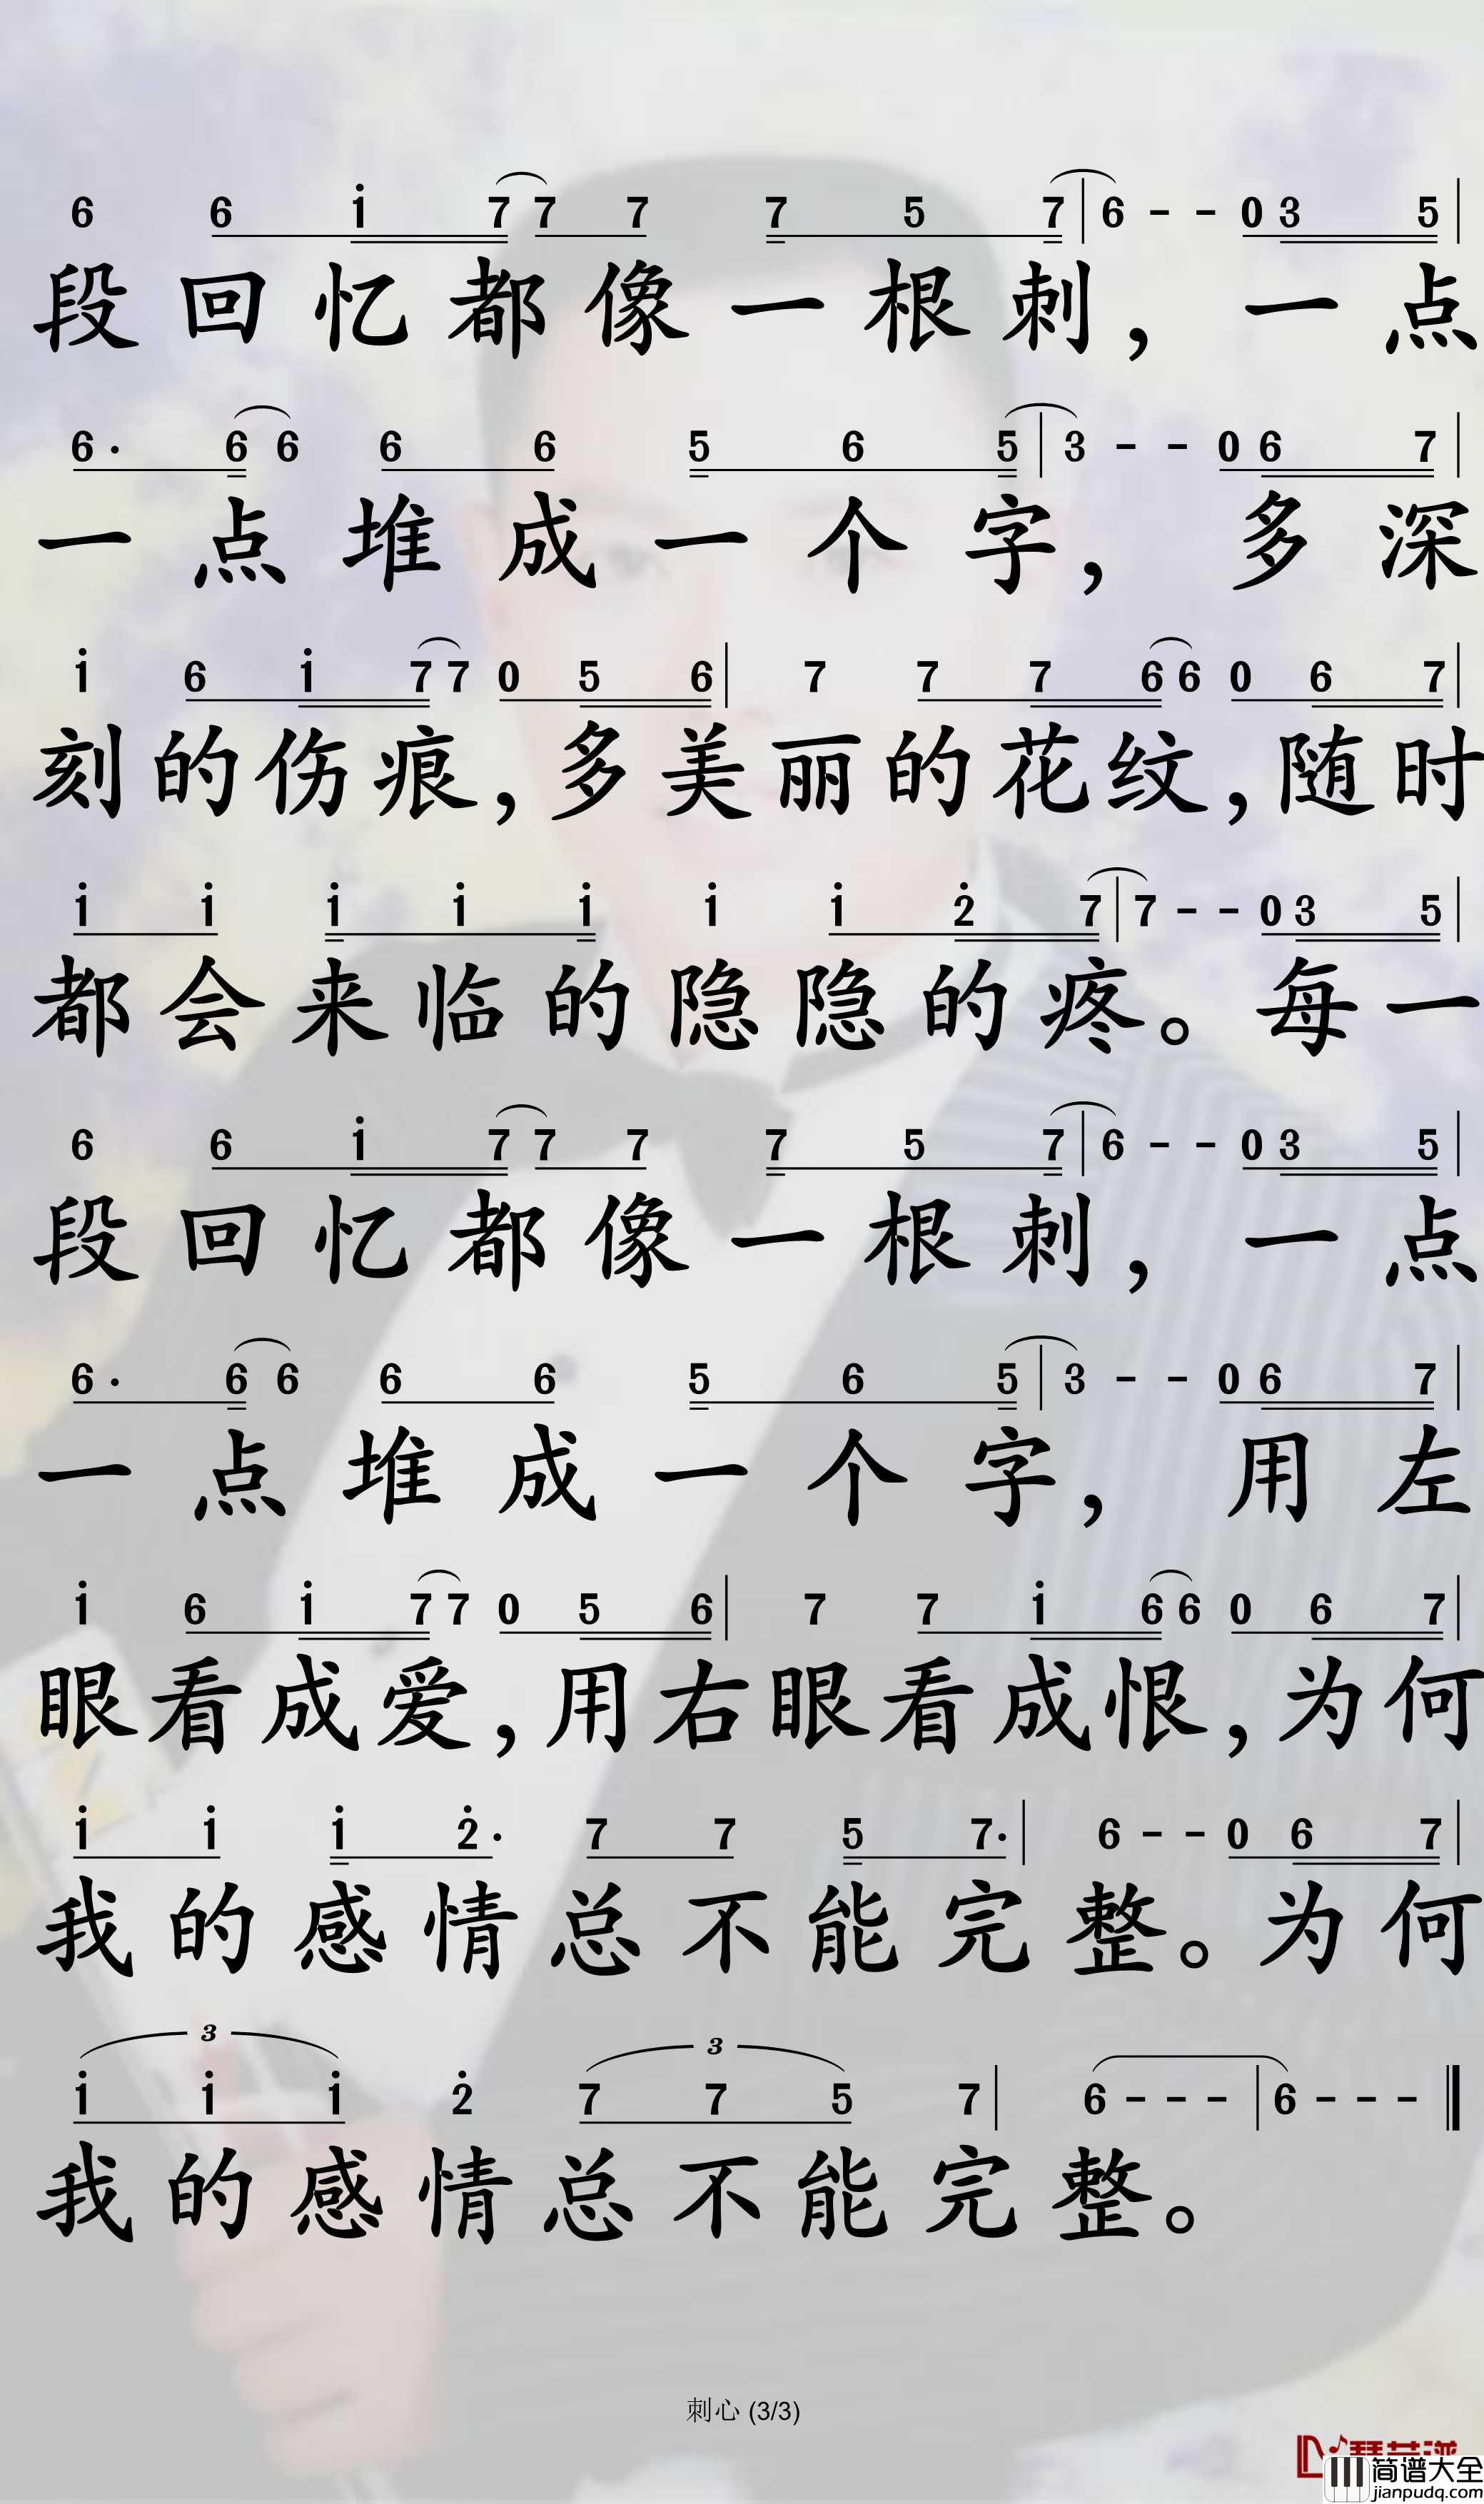 6 6 i 7 7 7 7 5 7 | 6 - - 0 3 5 |
段回忆都像一根刺，一点
6· 6 6 6 6 5 6 5 | 3 - - 0 6 7 |
一点堆成一个字，多深
i 6 i 7 7 0 5 6 | 7 7 7 6 6 0 6 7 |
刻的伤痕，多美丽的花纹，随时
i i i i i i i 2̇ 7 | 7 - - 0 3 5 |
都会来临的隐隐的疼。每一
6 6 i 7 7 7 7 5 7 | 6 - - 0 3 5 |
段回忆都像一根刺，一点
6· 6 6 6 6 5 6 5 | 3 - - 0 6 7 |
一点堆成一个字，用左
i 6 i 7 7 0 5 6 | 7 7 i 6 6 0 6 7 |
眼看成爱，用右眼看成恨，为何
i i i 2̇· 7 7 5 7· | 6 - - 0 6 7 |
我的感情总不能完整。为何
3 3
i i i 2̇ 7 7 5 7 | 6 - - - | 6 - - - ‖
我的感情总不能完整。
刺心 (3/3)
简谱大全
jianpudq.com